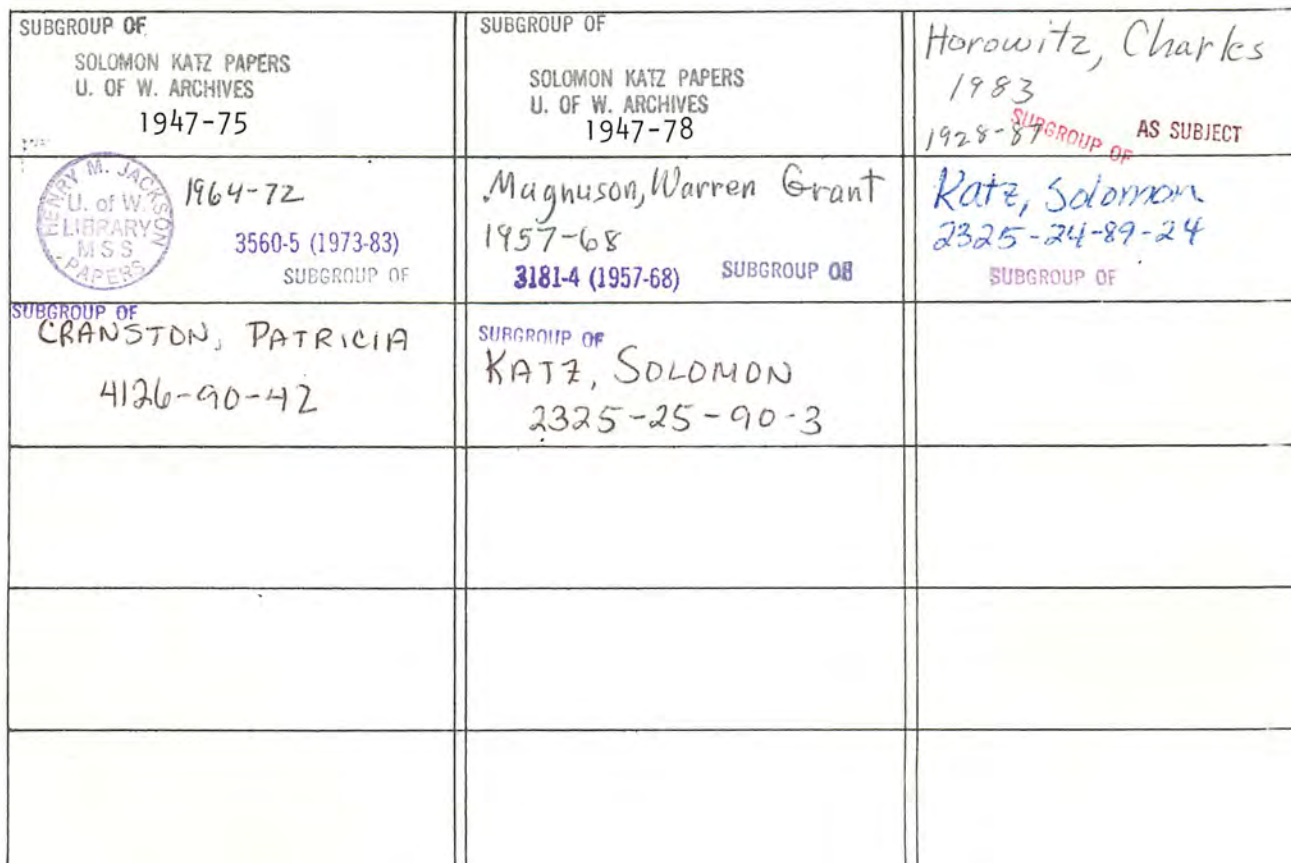 SUBGROUP OF
SOLOMON KATZ PAPERS
U. OF W. ARCHIVES
1947-75
SUBGROUP OF
SOLOMON KATZ PAPERS
U. OF W. ARCHIVES
1947-78
Horowitz, Charles
1983
1928-87 SUBGROUP OF AS SUBJECT
HENRY M. JACKSON PAPERS
U. of W.
LIBRARY
MSS
1964-72
3560-5 (1973-83)
SUBGROUP OF
Magnuson, Warren Grant
1957-68
3181-4 (1957-68) SUBGROUP OF
Katz, Solomon
2325-24-89-24
SUBGROUP OF
SUBGROUP OF
CRANSTON, PATRICIA
4126-90-42
SUBGROUP OF
KATZ, SOLOMON
2325-25-90-3